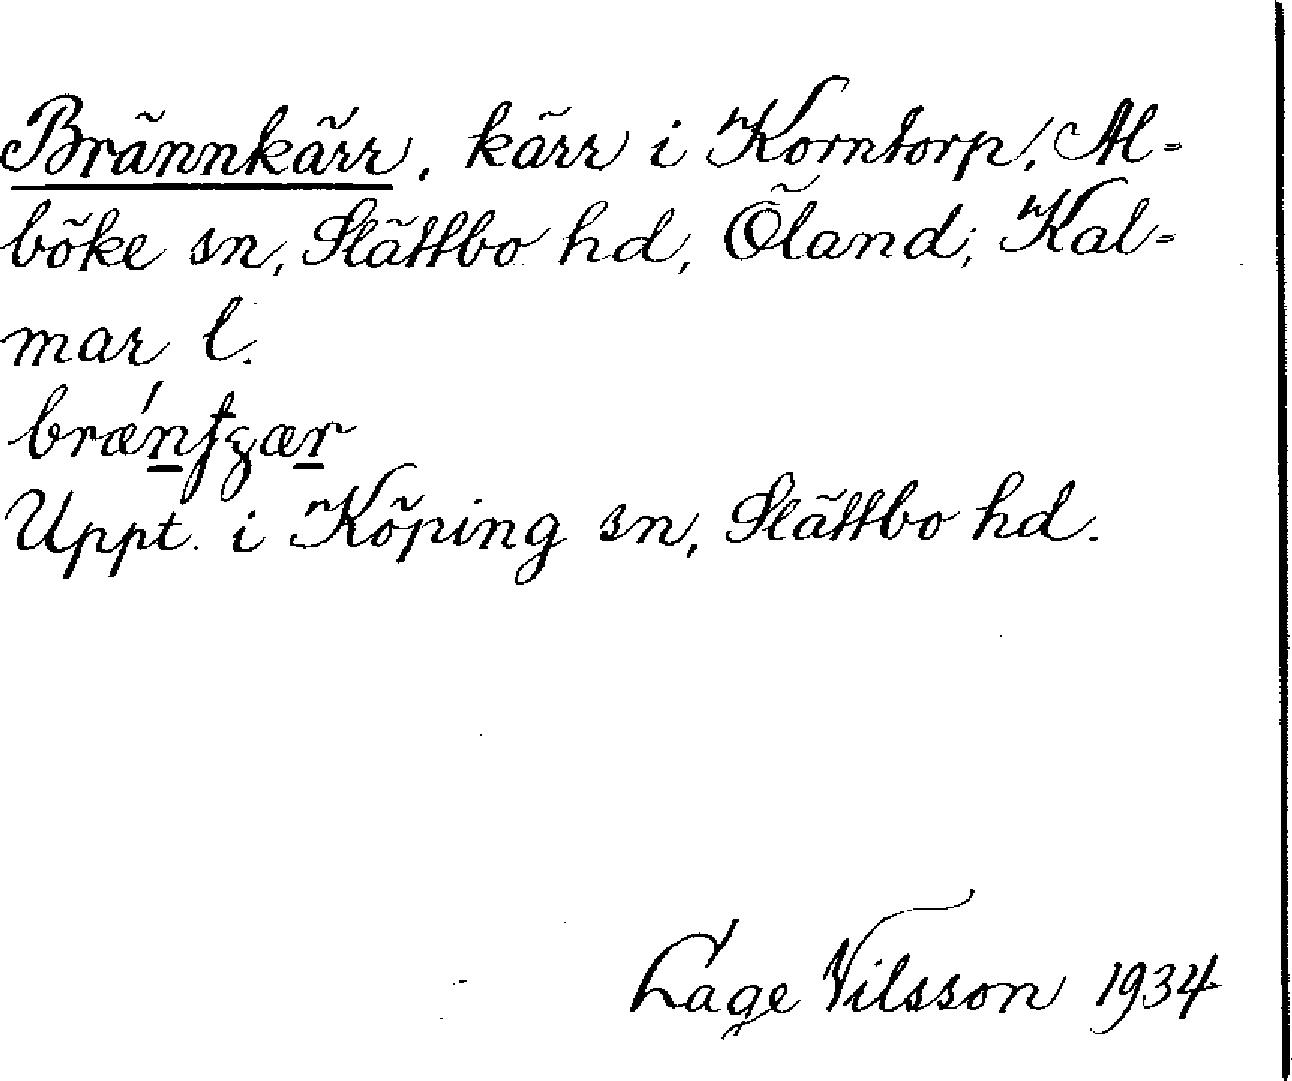 Brännkärr, kärr i Korntorp, Al-
böke sn, Slättbo hd, Öland, Kal-
mar l.
Uppt. i Köping sn, Slättbo hd.
Lage Nilsson 1934